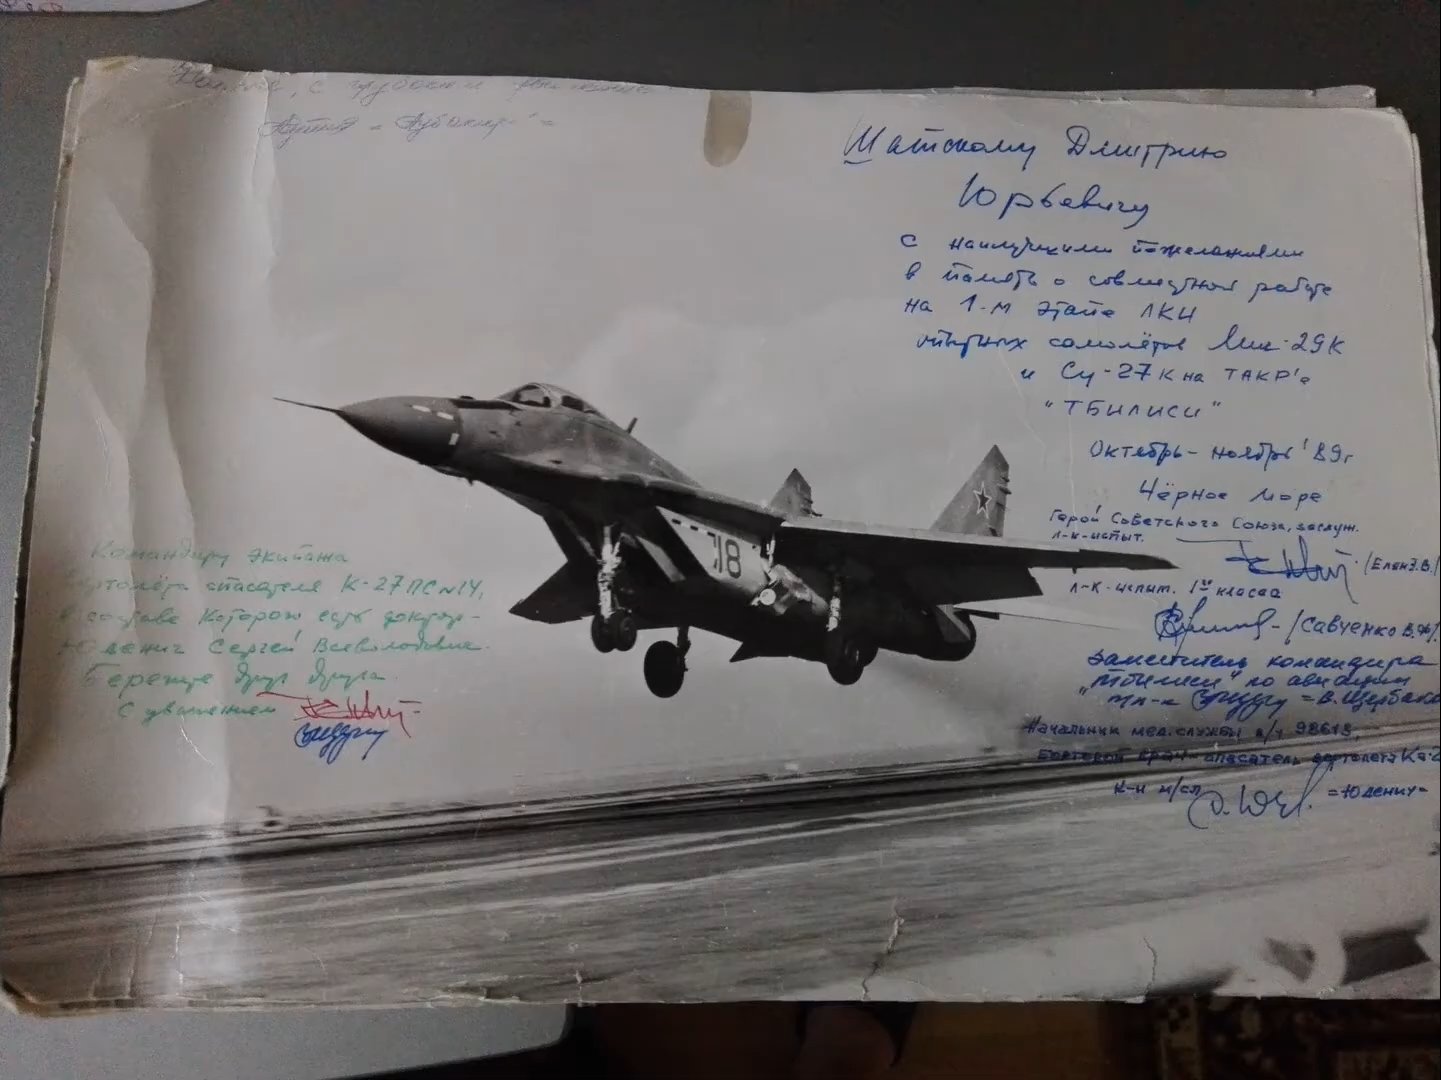 с
= Аубакир =
Шатскому Дмитрию
Юрьевичу
с наилучшими пожеланиями
в память о совместной работе
на 1-м этапе ЛКИ
опытных самолётов Миг-29К
и Су-27К на ТАКР'е
"ТБИЛИСИ"
Октябрь-ноябрь '89г
Чёрное море
Герой Советского Союза, заслуж.
л-к-испыт.
л-к-испыт. 1го класса
/САВЧЕНКО В.
Заместитель командира
"Тбилиси" по авиации
п/п-к = В. Щербак
Начальник мед. службы в/ч 98613,
Бортовой врач спасатель вертолета Ка-2
к-н м/сл = Юденич =
Командиру экипажа
вертолёта спасателя К-27ПС №14,
в составе которого есть доктор-
Юденич Сергей Всеволодович.
Берегите друг друга.
С уважением
18